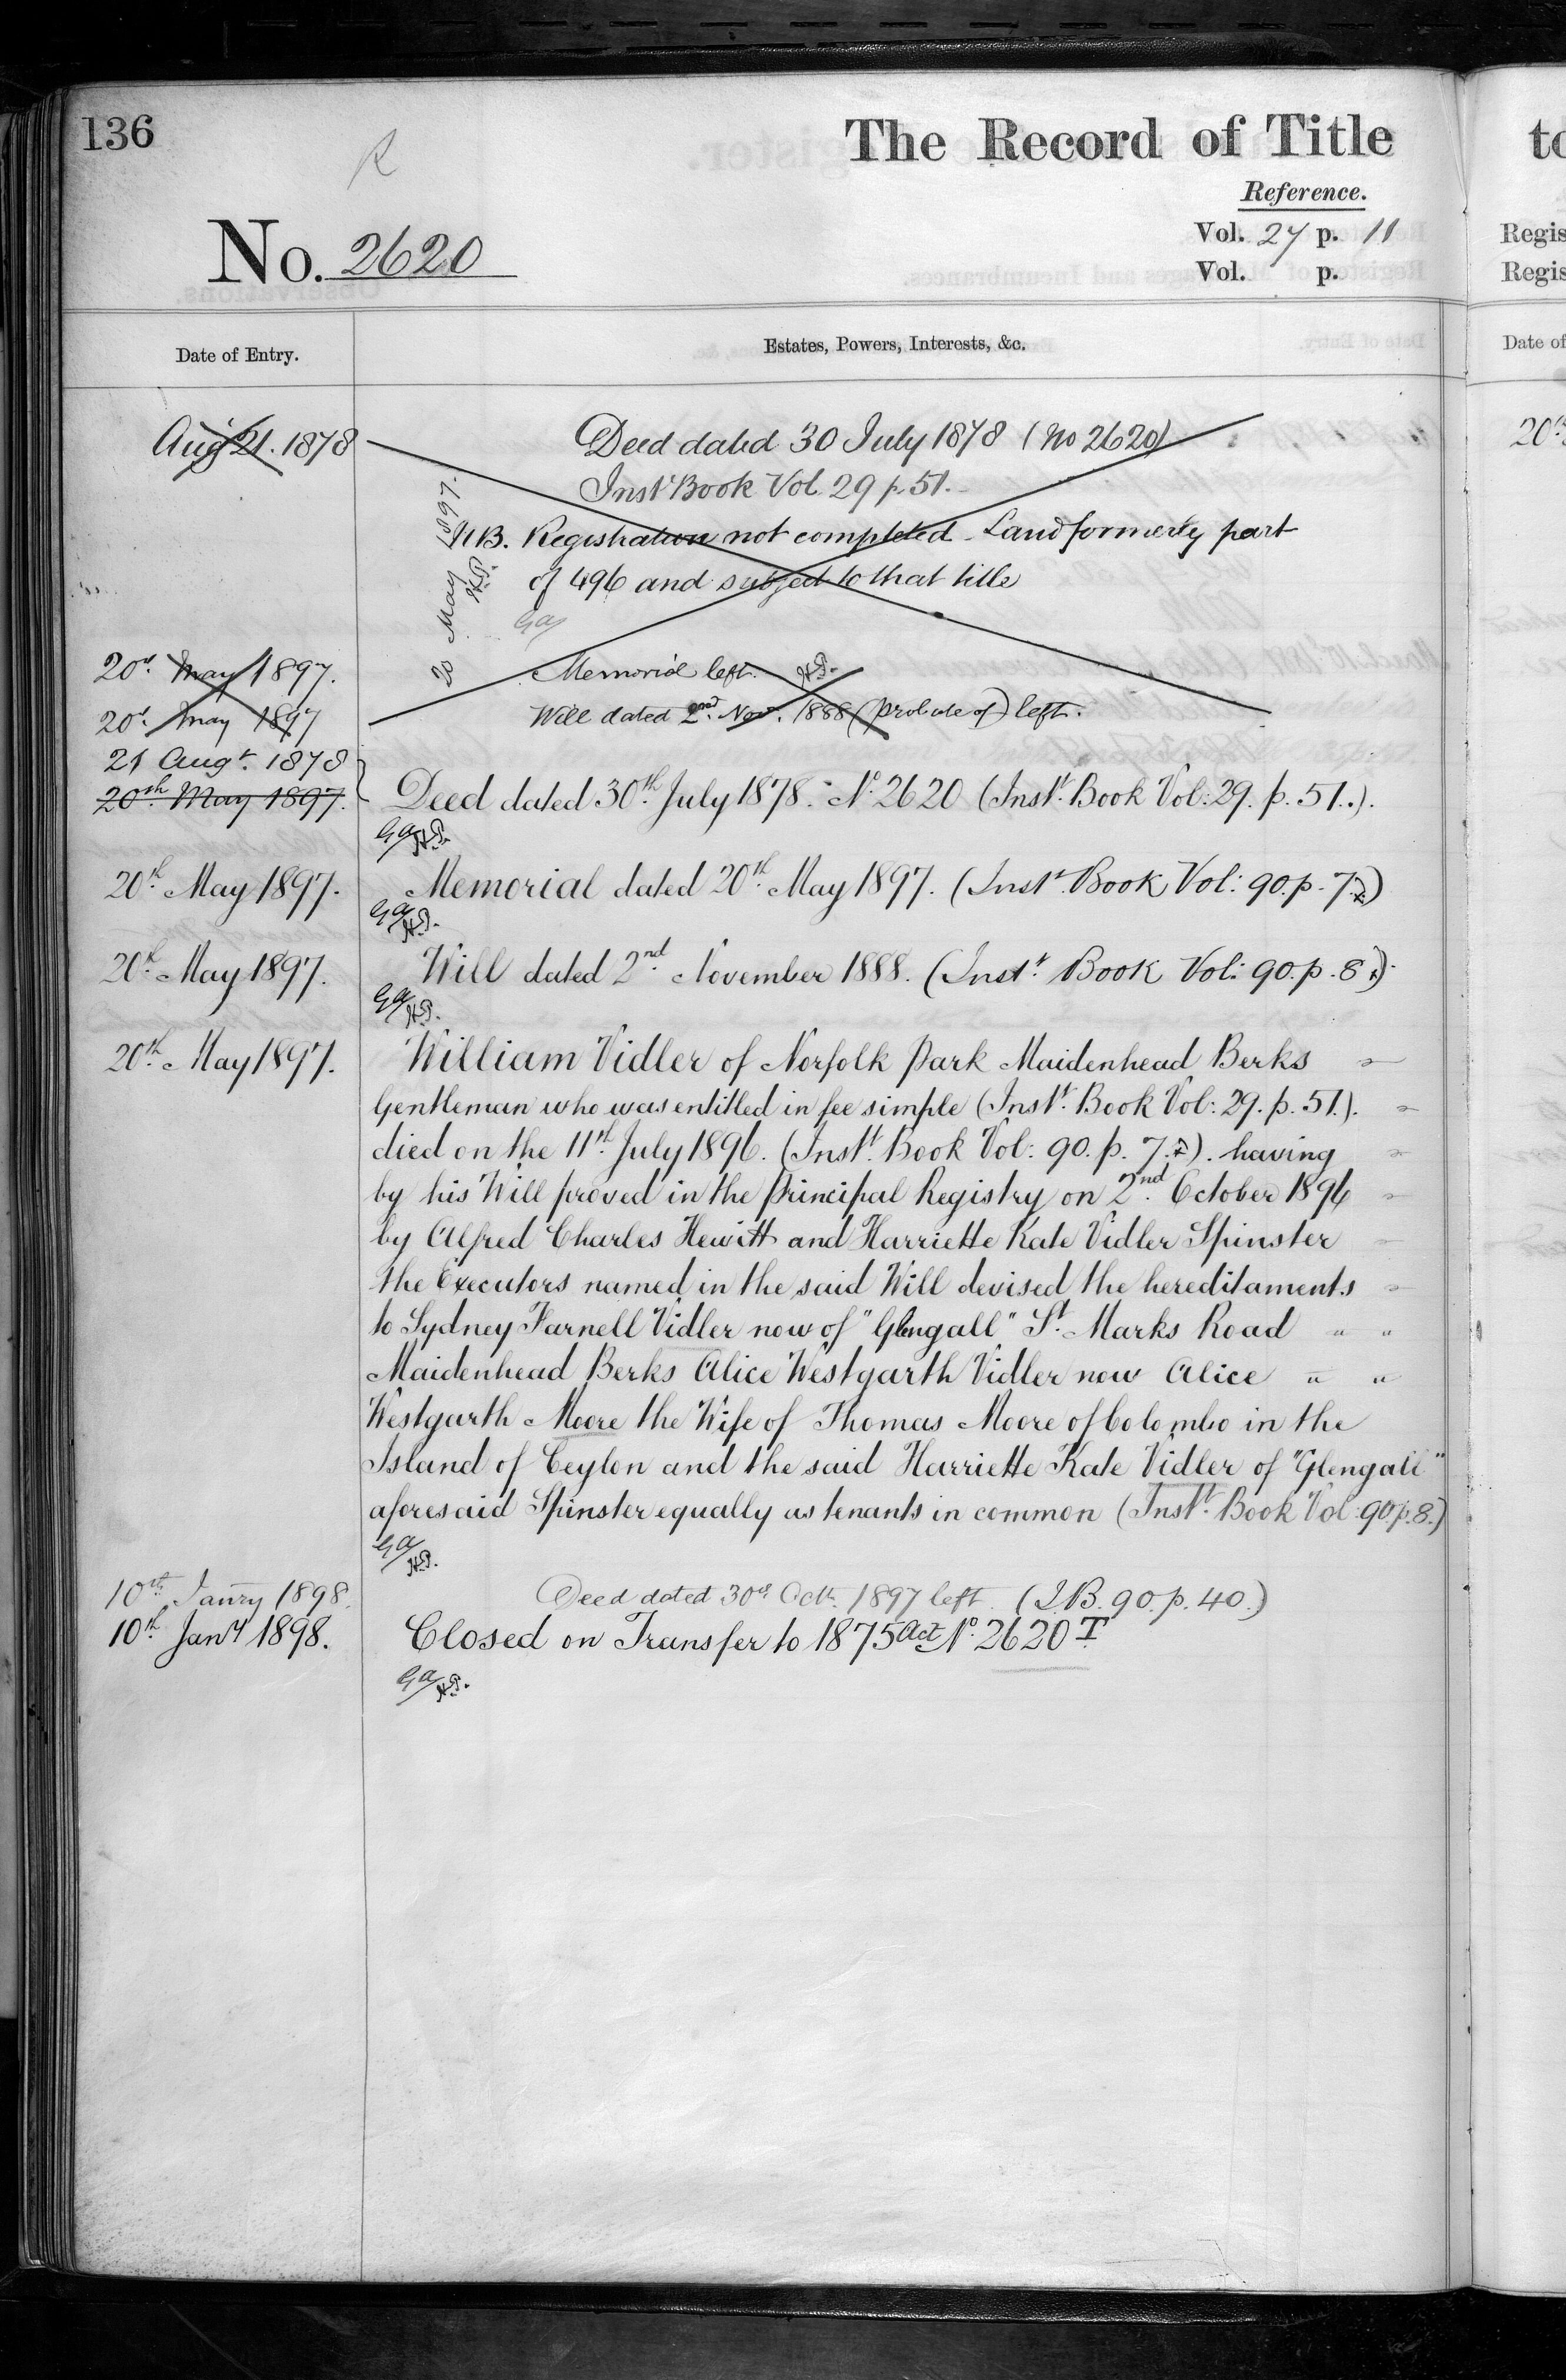 136
R
The Record of Title
Reference.
No. 2620
Vol. 27 p. 11
Vol. p.
Regis
Regis
Date of Entry.
Estates, Powers, Interests, &c.
Date of
Aug 21. 1878
Deed dated 30 July 1878 (No 2620)
Inst Book Vol. 29 p. 51.
20 May 1897.
H.P.
N.B. Registration not completed - Land formerly part
of 496 and subject to that title
GA
20th May 1897.
Memorial left. H.P.
20th May 1897
Will dated 2nd Nov. 1888 (probate of) left.
21 Augt. 1878
20th May 1897.
Deed dated 30th July 1878. No. 2620 (Instt. Book Vol: 29. p. 51.).
GA/H.P.
20th May 1897.
Memorial dated 20th May 1897. (Instt. Book Vol: 90. p. 7.)
GA/H.P.
20th May 1897.
Will dated 2nd November 1888. (Instt. Book Vol: 90. p. 8.)
GA/H.P.
20th May 1897.
William Vidler of Norfolk Park Maidenhead Berks
Gentleman who was entitled in fee simple (Instt. Book Vol: 29. p. 51.).
died on the 11th July 1896. (Instt. Book Vol: 90. p. 7.). having
by his Will proved in the Principal Registry on 2nd October 1896
by Alfred Charles Hewitt and Harriette Kate Vidler Spinster
the Executors named in the said Will devised the hereditaments
to Sydney Farnell Vidler now of "Glengall" St. Marks Road " "
Maidenhead Berks Alice Westgarth Vidler now Alice " "
Westgarth Moore the Wife of Thomas Moore of Colombo in the
Island of Ceylon and the said Harriette Kate Vidler of "Glengall"
aforesaid Spinster equally as tenants in common (Instt. Book Vol: 90. p. 8.)
GA/H.P.
10th Janry 1898.
Deed dated 30th Octr. 1897 left (I.B. 90. p. 40.)
10th Jany 1898.
Closed on Transfer to 1875 Act No. 2620 T
GA/H.P.